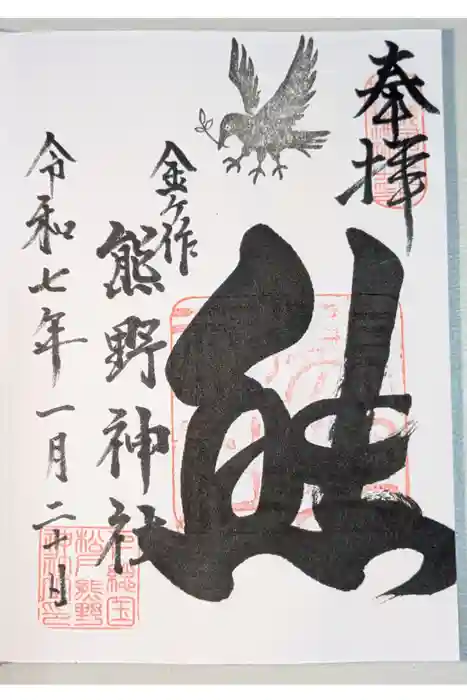 奉拝
熊
金ケ作
熊野神社
令和七年一月二十日
下総国
松戸熊野
神社之印